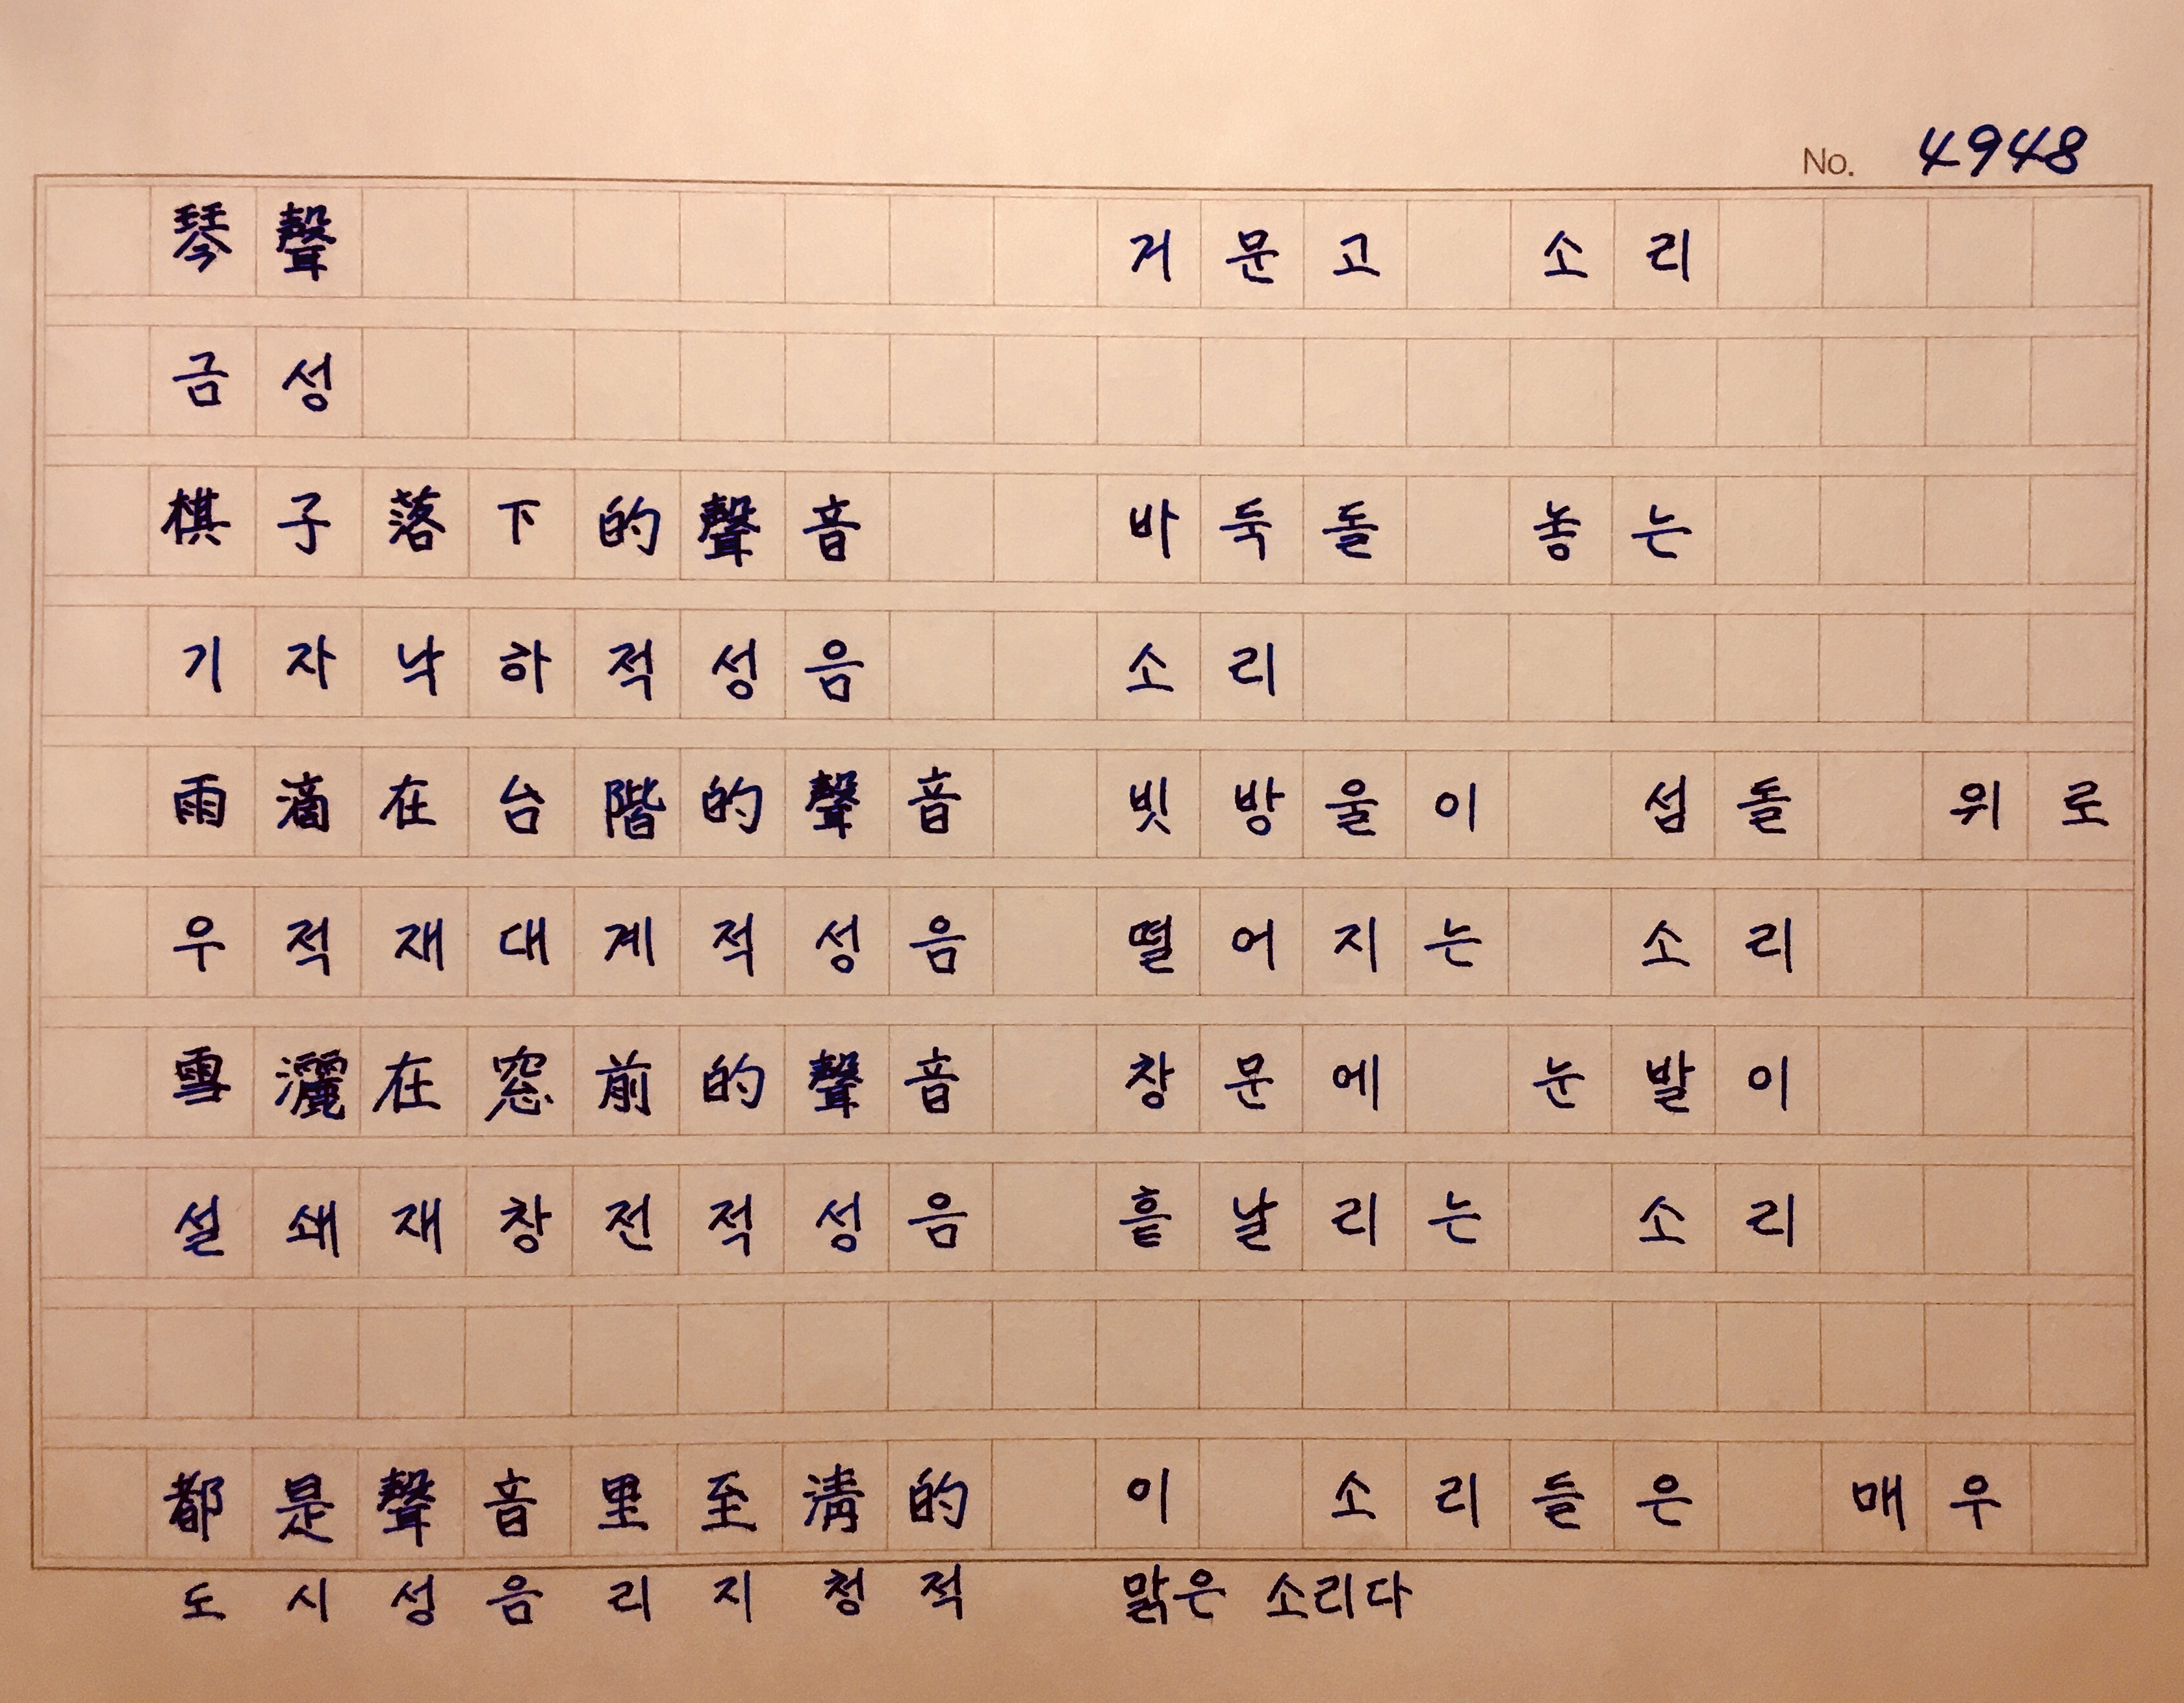 No. 4948
琴聲 거문고 소리
금성
棋子落下的聲音 바둑돌 놓는
기자낙하적성음 소리
雨滴在台階的聲音 빗방울이 섬돌 위로
우적재대계적성음 떨어지는 소리
雪灑在窓前的聲音 창문에 눈발이
설쇄재창전적성음 흩날리는 소리
都是聲音里至淸的 이 소리들은 매우
도시성음리지청적 맑은 소리다